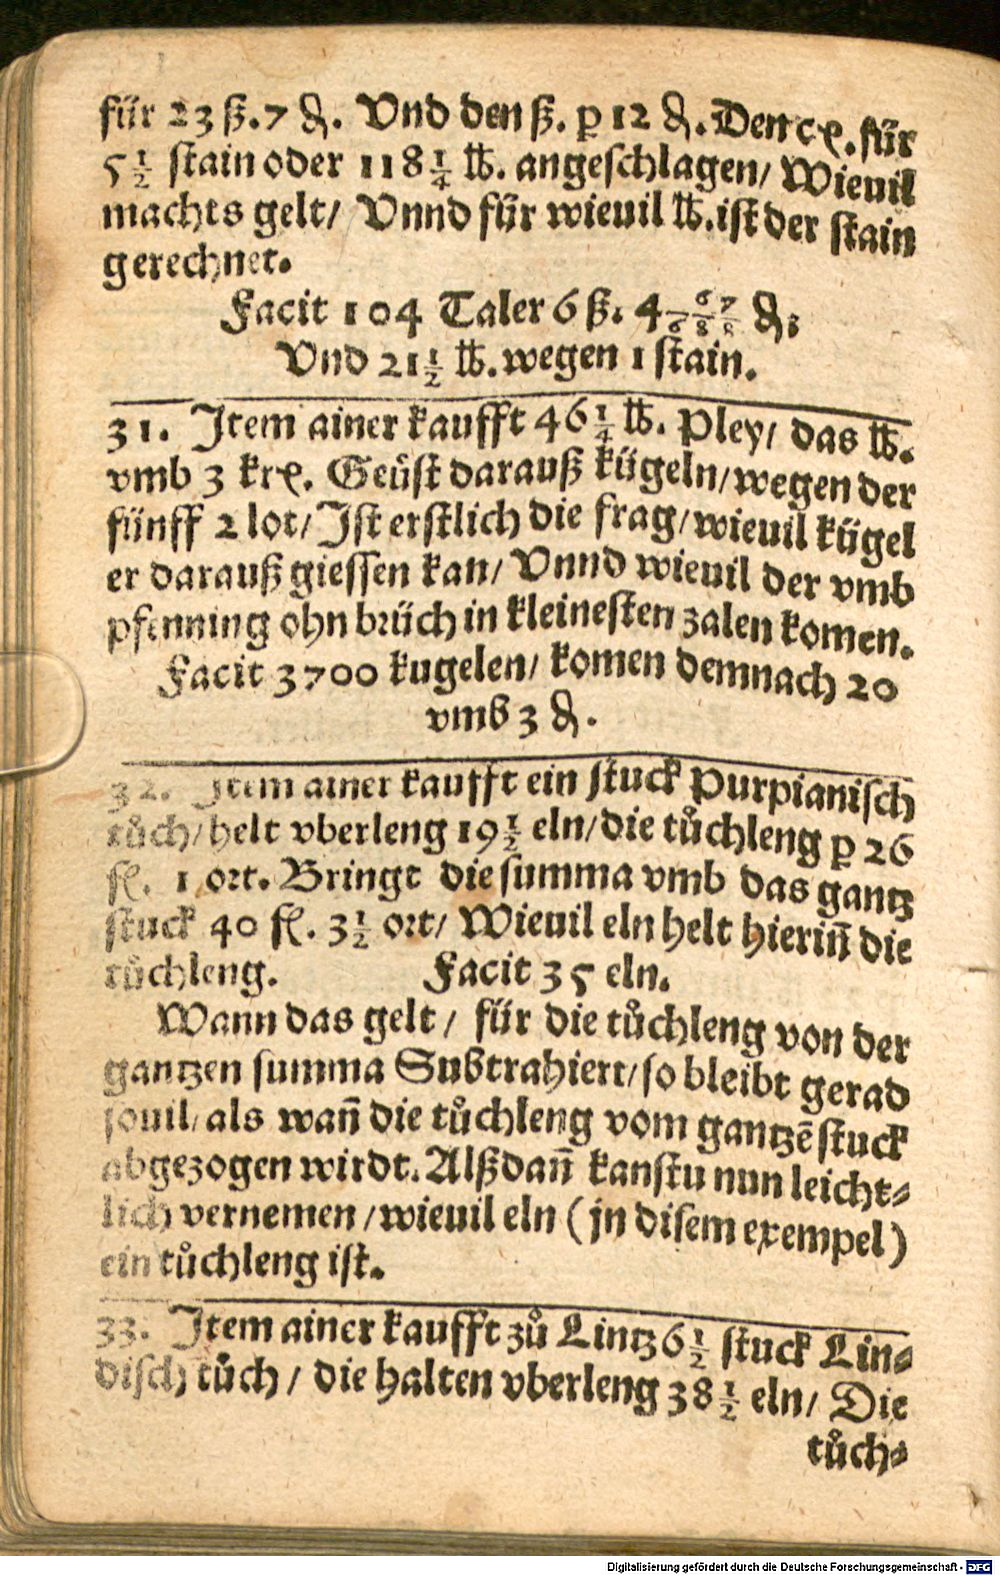 für 23 ß. 7 ₰. Vnd den ß. p 12 ₰. Den cꝶ. für
5 1/2 stain oder 118 1/4 ℔. angeschlagen/ Wieuil
machts gelt/ Vnnd für wieuil ℔. ist der stain
gerechnet.
Facit 104 Taler 6 ß. 4 67/688 ₰;
Vnd 21 1/2 ℔. wegen 1 stain.
31. Item ainer kaufft 46 1/4 ℔. Pley/ das ℔.
vmb 3 krꝶ. Geüst darauß kügeln/ wegen der
fünff 2 lot/ Ist erstlich die frag/ wieuil kügel
er darauß giessen kan/ Vnnd wieuil der vmb
pfenning ohn brüch in kleinesten zalen komen.
Facit 3700 kugelen/ komen demnach 20
vmb 3 ₰.
32. Item ainer kaufft ein stuck Purpianisch
tůch/ helt vberleng 19 1/2 eln/ die tůchleng p 26
fl. 1 ort. Bringt die summa vmb das gantz
stuck 40 fl. 3 1/2 ort/ Wieuil eln helt hierin̄ die
tůchleng. Facit 35 eln.
Wann das gelt/ für die tůchleng von der
gantzen summa Subtrahiert/ so bleibt gerad
souil/ als wan̄ die tůchleng vom gantzē stuck
abgezogen wirdt. Alßdan̄ kanstu nun leicht⸗
lich vernemen/ wieuil eln (jn disem exempel)
ein tůchleng ist.
33. Item ainer kaufft zů Lintz 6 1/2 stuck Lin⸗
disch tůch/ die halten vberleng 38 1/2 eln/ Die
tůch⸗
Digitalisierung gefördert durch die Deutsche Forschungsgemeinschaft - DFG